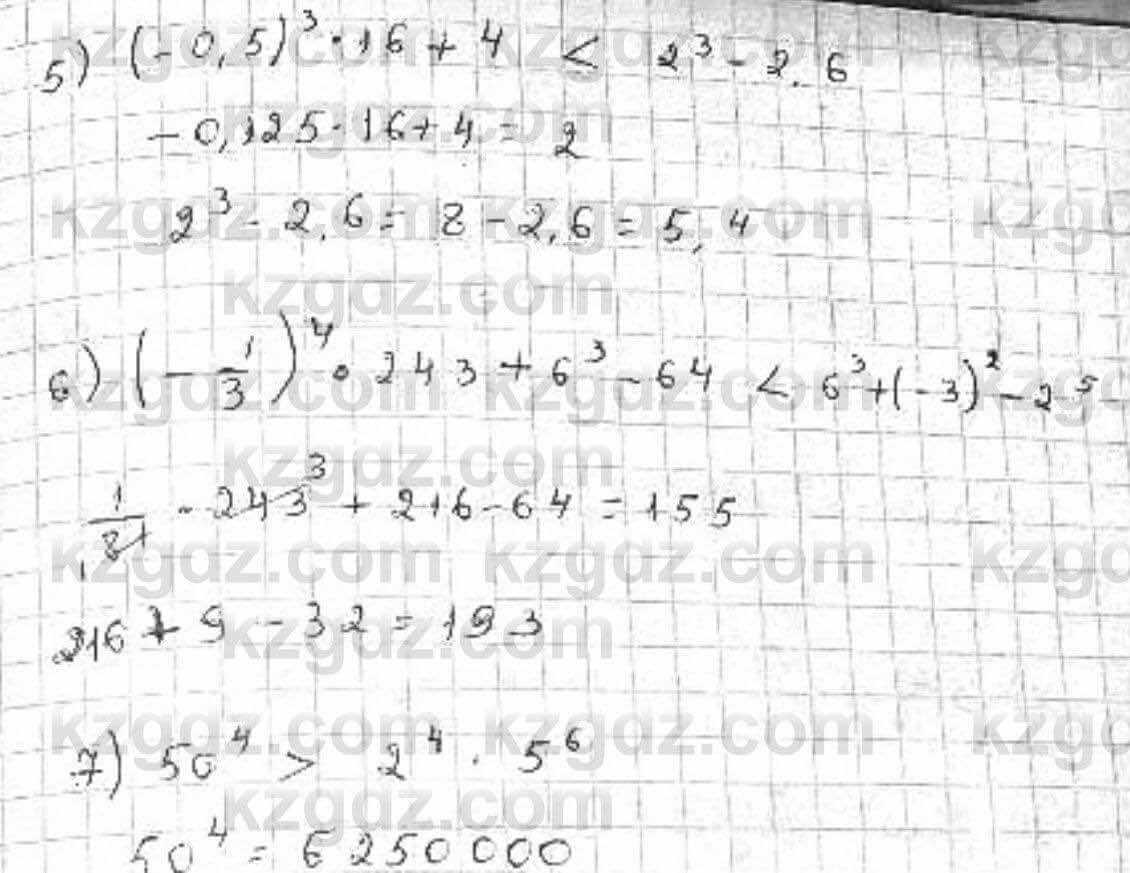 5) (-0,5)³·16+4 < 2³-2.6
-0,125·16+4=2
2³-2,6=8-2,6=5,4
6) (-1/3)⁴·243+6³-64 < 6³+(-3)²-2⁵
1/81·243³+216-64=155
216+9-32=193
7) 50⁴ > 2⁴·5⁶
50⁴=6250000
kzgdz.com